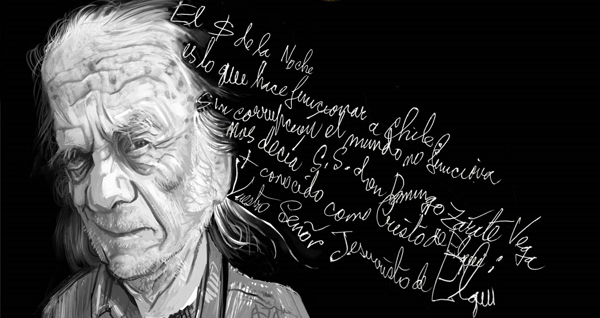 El $ de la Noche
es lo que hace funcionar a Chile
Sin corrupción el mundo no funciona
Nos decía S.S. don Domingo Zárate Vega
+ conocido como Cristo de Elqui
Nuestro Señor Jesucristo de Elqui